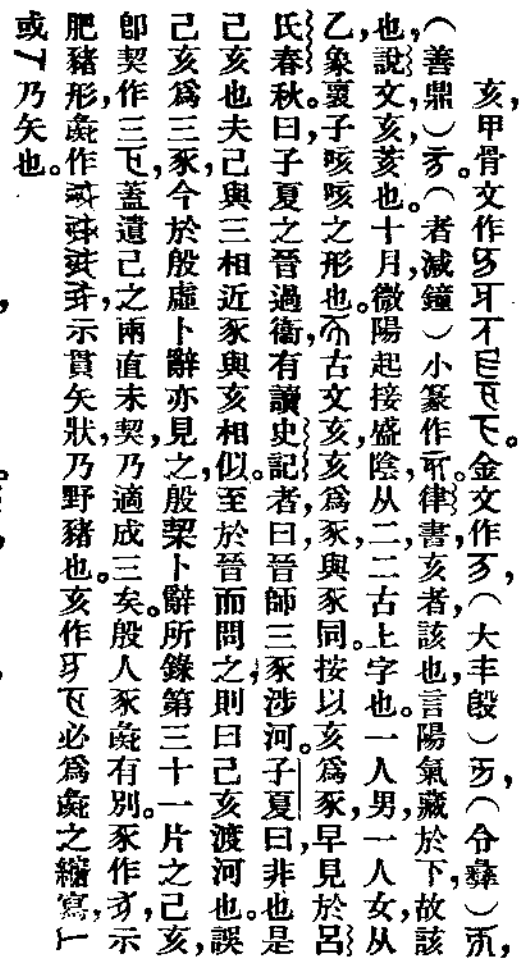 亥,甲骨文作。金文作,(大丰𣪘),(令彝),
(善鼎)。(者減鐘)小篆作。律書,亥者,該也,言陽氣藏於下,故該
也,說文,亥,荄也。十月,微陽起接盛陰,从二,二古上字也。一人男,一人女,从
乙,象裏,子咳咳之形也。古文亥,亥爲豕,與豕同。按以亥爲豕,早見於呂
氏春秋。曰,子夏之晉過衞,有讀史記者,曰,晉師三豕涉河。子夏曰,非也是
己亥也夫己與三相近豕與亥相似。至於晉而問之,則曰己亥渡河也。誤
己亥爲三豕,今於殷虛卜辭亦見之,殷栔卜辭所錄第三十一片之己亥,
卽契作三,蓋遺己之兩直未契,乃適成三矣。殷人豕彘有別。豕作,示
肥豬形,彘作,示貫矢狀,乃野豬也。亥作必爲彘之縮寫,
或乃矢也。